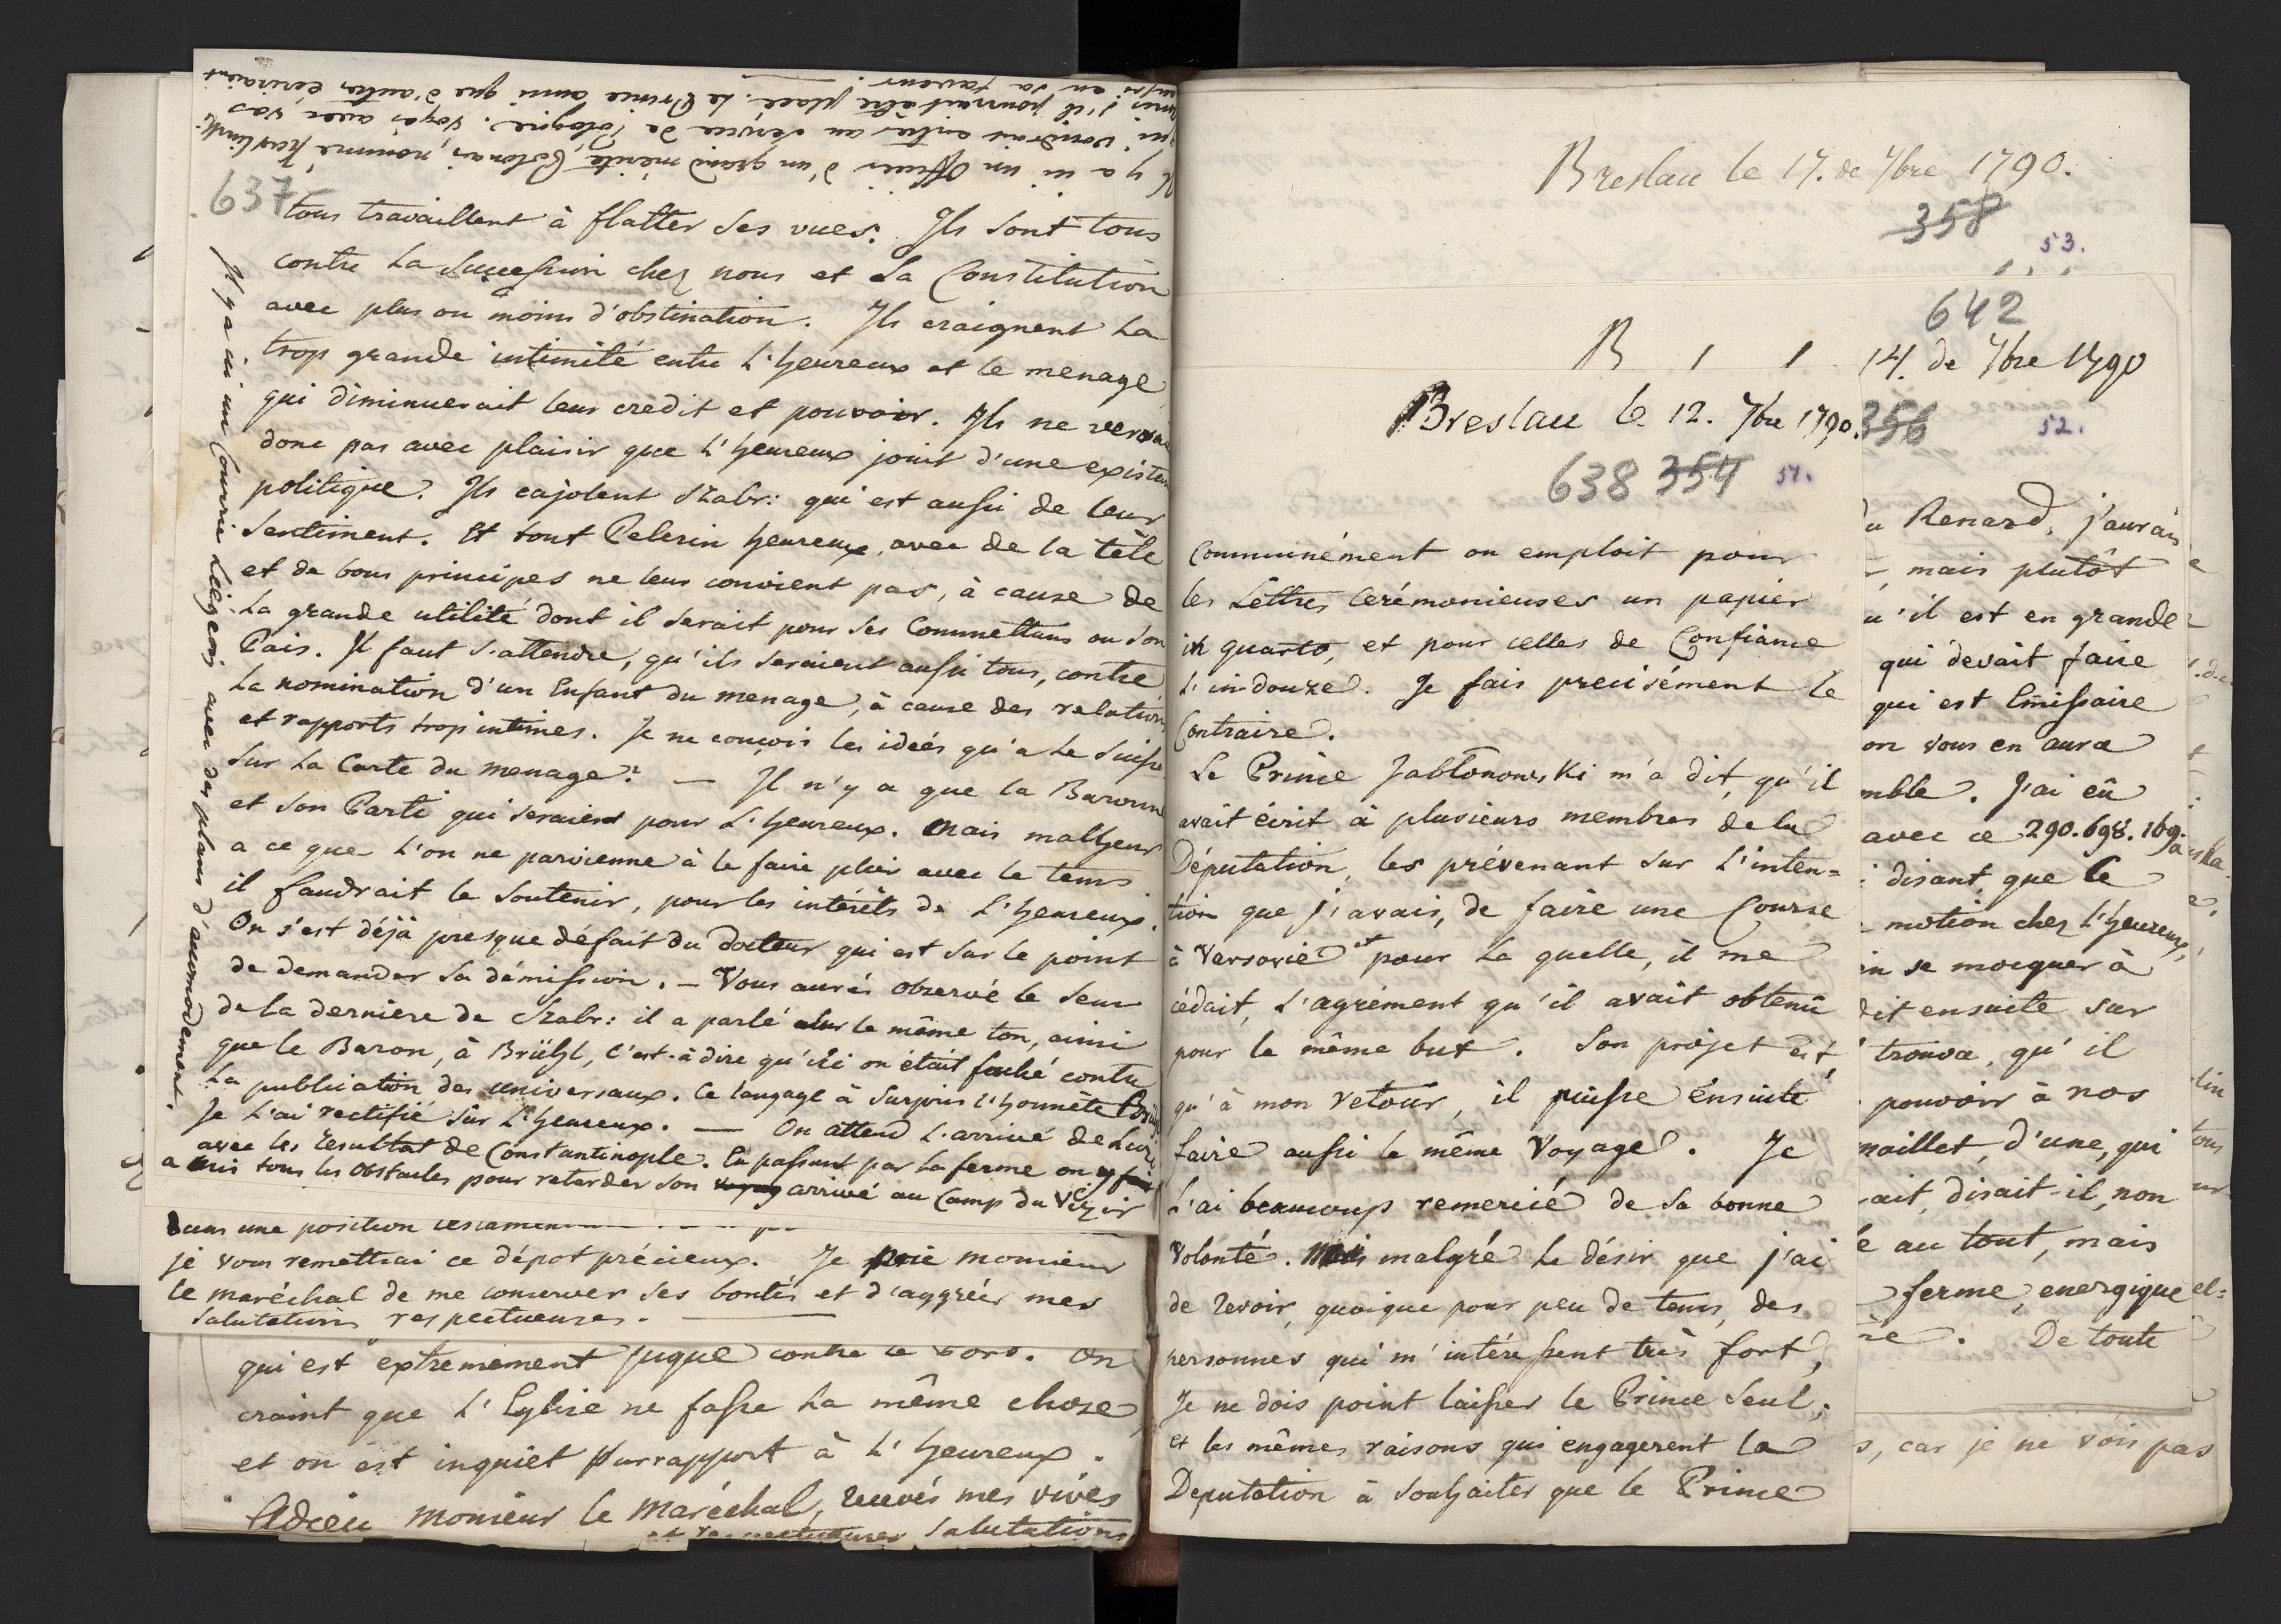 Il y a ici un Officier d'un grand mérite, Polonais, nommé
qui voudrait entrer au service de Pologne. Voyés avec vos
amis s'il pourrait être placé. Le Prince ainsi que d'autres écriraient
aussi en sa faveur.
637
tous travaillent à flatter ses vues. Ils sont tous
contre La Succession chez nous et La Constitution
avec plus ou moins d'obstination. Ils craignent La
trop grande intimité entre L'heureux et le menage
qui diminuerait leur credit et pouvoir. Ils ne
donc pas avec plaisir que L'heureux jouit d'une existen
politique. Ils cajolent Szabr: qui est aussi de leur
Sentiment. Et tout Pelerin heureux, avec de la tête
et de bons principes ne leur convient pas, à cause de
La grande utilité dont il serait pour ses Commettans ou Son
Pais. Il faut s'attendre, qu'ils seraient aussi tous, contre
La nomination d'un Enfant du menage, à cause des relations
et rapports trop intimes. Je ne concois les ideés qu'a Le Suisse
Sur La Carte du menage? — Il n'y a que la Baronne
et Son Parti qui seraient pour L'heureux. Mais malheur
a ce que L'on ne parvienne à le faire plier avec le tems
il faudrait le soutenir, pour les intérêts de L'heureux.
On s'est déjà presque défait du docteur qui est sur le point
de demander Sa démission. — Vous aurés observé le Sens
de la dernière de Szabr: il a parlé sur le même ton, ainsi
que le Baron, à Brühl, c'est-à dire qu'ici on était faché contre
La publication des universaux. Ce langage à Surpris l'honnête
Je L'ai rectifié sur L'heureux. — On attend L'arrivé de
avec les résultat de Constantinople. En passant par la ferme on y
a mis tous les obstacles pour retarder son arrivé au Camp du Vizir
Il y a ici un Courrie Liégeois avec des plans d'accomodement.
Dans une position
je vous remettrai ce dépot précieux. Je prie monsieur
le maréchal de me conserver ses bontés et d'aggréér mes
Salutations respectueuses.
qui est extremement contre le Nord. On
craint que L'Eglise ne fasse La même chose
et on est inquiet par rapport à L'heureux.
Adieu monsieur le Maréchal, recevés mes vives
et respectueuses Salutations
Breslau le 17. de 7bre 1790.
358
53.
642
B
14. de 7bre 1790
356
52.
Breslau le 12. 7bre 1790.
638 354 51.
Communément on emploit pour
les Lettres Cerémonieuses un papier
in quarto, et pour celles de Confiance
L'in-douze. Je fais precisément le
Contraire.
Le Prince Jabłonowski m'a dit, qu'il
avait écrit à plusieurs membres de la
Députation, les prévenant sur L'inten=
tion que j'avais, de faire une Course
à Varsovie et pour La quelle, il me
cédait, L'agrément qu'il avait obtenû
pour le même but. Son projet est,
qu'à mon retour, il puisse énsuite
faire aussi le même Voyage. Je
L'ai beaucoup remercié de Sa bonne
Volonté. Mais malgré Le désir que j'ai
de revoir, quoique pour peu de tems, des
personnes qui m'intéressent très fort,
Je ne dois point laisser le Prince Seul;
et les mêmes raisons qui engagerent la
Deputation à Souhaiter que le Prince
Renard, j'aurais
mais plutôt
u'il est en grande
qui devait faire
qui est Emissaire
on vous en aura
mble. J'ai eû
avec ce 290.698.169.
disant, que le
motion chez L'heureux,
se mocquer à
dit ensuite sur
trouva, qu'il
pouvoir à nos
maillet, d'une, qui
ait, disait-il, non
au tout, mais
ferme, energique
De toute
s, car je ne vois pas